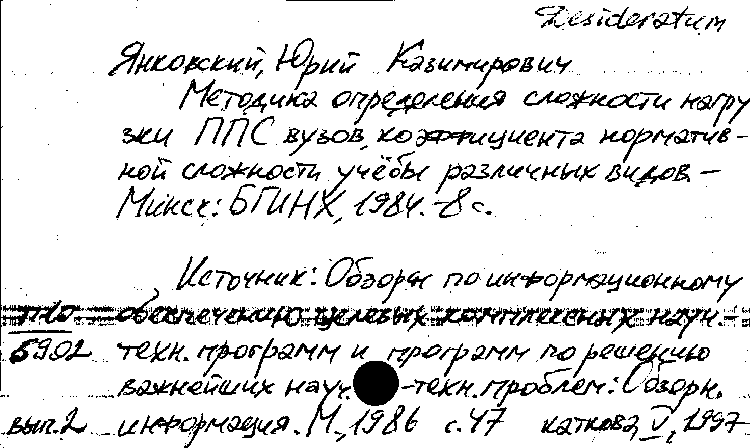 Desideratum
Янковский, Юрий Казимирович
Методика определения сложности нагру
зки ППС вузов, коэффициента норматив-
ной сложности учёбы различных видов. -
Минск: БГИНХ, 1984. - 8 с.
Источник: Обзоры по информационному
обеспечению целевых комплексных науч.-
5902 техн. программ и программ по решению
важнейших науч.-техн. проблем: Обзорн.
вып. 2 информация. М., 1986 с. 47 каткова, V, 1997